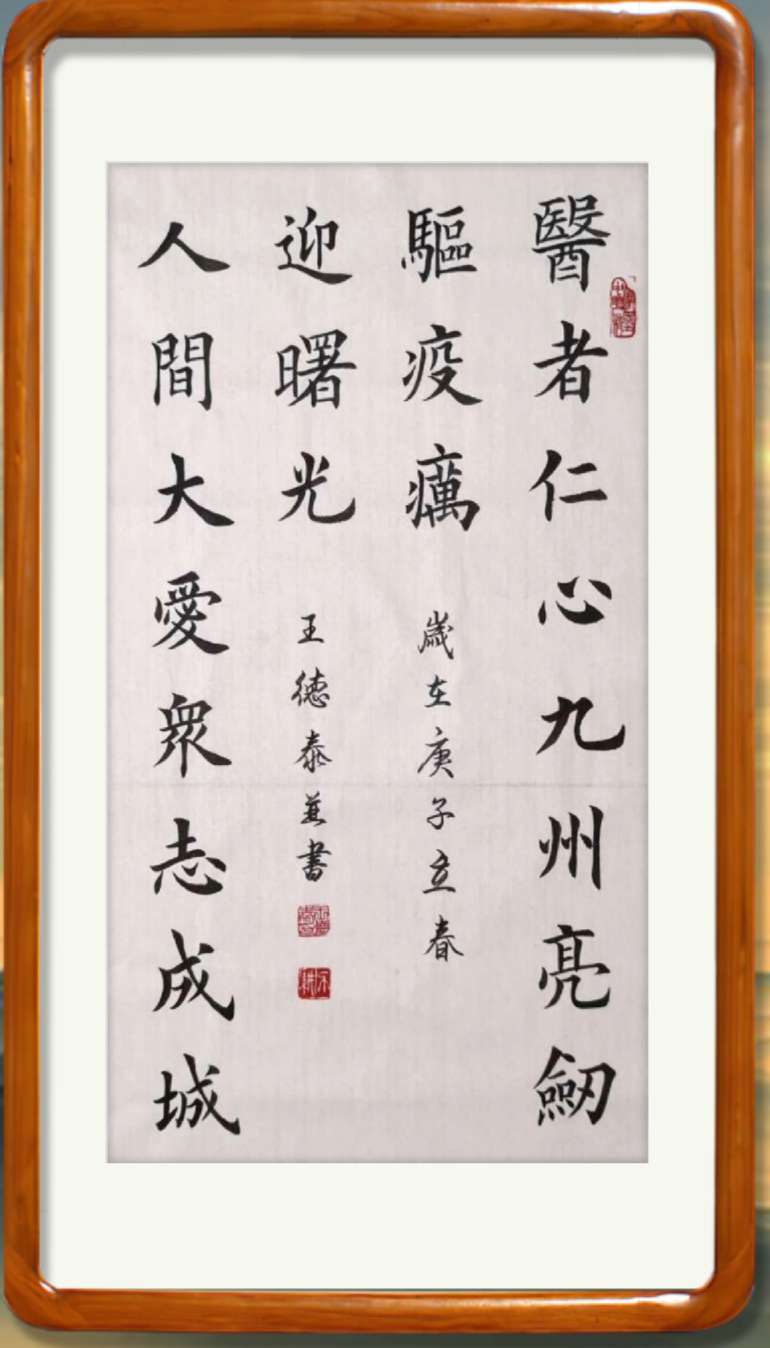 醫者仁心九州亮劒
驅疫癘
歲在庚子立春
人間大愛衆志成城
迎曙光
王德泰 書